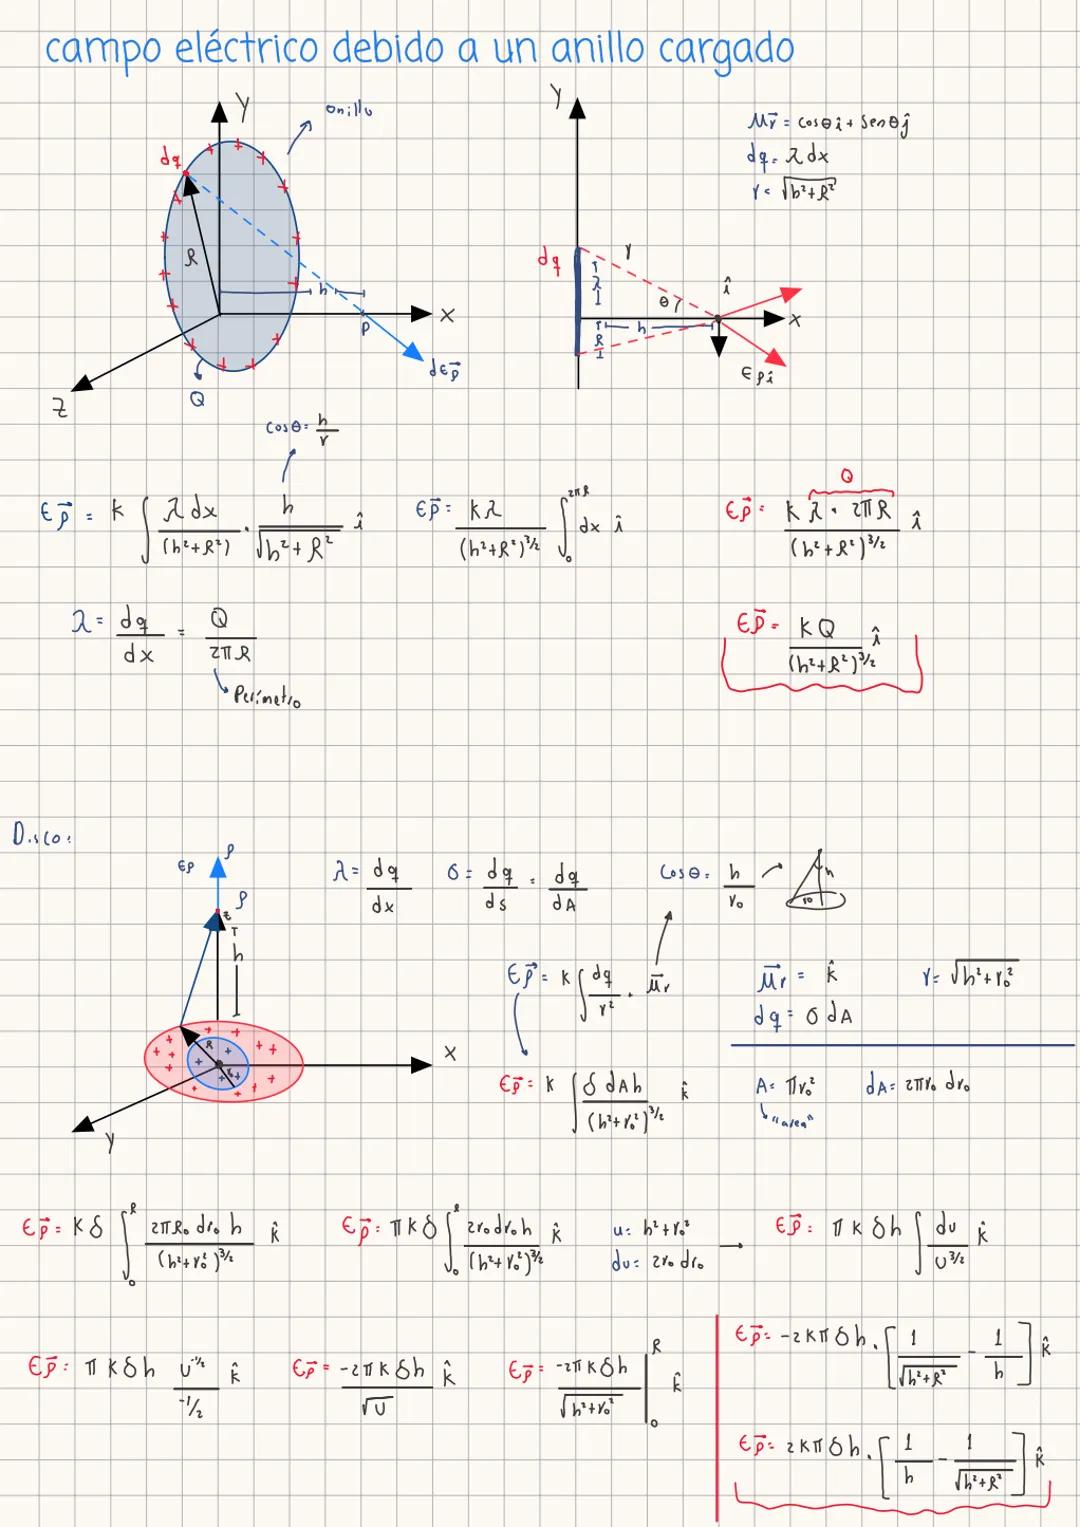 campo eléctrico debido a un anillo cargado
Y
anillo
dq
R
h
P
X
dEp⃗
Z
Q
Y
dq
r
λ
θ
î
h
R
X
Epî
μr⃗ = cosθî + senθĵ
dq = λ dx
r = √h²+R²
cosθ = h/r
Ep⃗ = k ∫ λ dx/(h²+R²) · h/√h²+R² î
Ep⃗ = kλ/(h²+R²)³/² ∫₀^2πR dx î
Q
Ep⃗ = k λ · 2πR/(h²+R²)³/² î
λ = dq/dx = Q/2πR
Perímetro
Ep⃗ = kQ/(h²+R²)³/² î
Disco:
Ep
P
P
z
h
R
r₀
X
y
λ = dq/dx
σ = dq/ds = dq/dA
cosθ = h/r₀
h
r0
Ep⃗ = k ∫ dq/r² · μr⃗
μr⃗ = k̂
r = √h²+r₀²
dq = σ dA
Ep⃗ = k ∫ δ dA h/(h²+r₀²)³/² k̂
A = πr₀²
dA = 2πr₀ dr₀
"area"
Ep⃗ = kδ ∫₀^R 2πR₀ dr₀ h/(h²+r₀²)³/² k̂
Ep⃗ = πkδ ∫₀^R 2r₀dr₀h/(h²+r₀²)³/² k̂
u = h²+r₀²
du = 2r₀ dr₀
→
Ep⃗ = πkδh ∫ du/u³/² k̂
Ep⃗ = πkδh u^-½/-½ k̂
Ep⃗ = -2πkδh/√u k̂
Ep⃗ = -2πkδh/√h²+r₀² |₀^R k̂
Ep⃗ = -2kπδh · [1/√h²+R² - 1/h] k̂
Ep⃗ = 2kπδh · [1/h - 1/√h²+R²] k̂